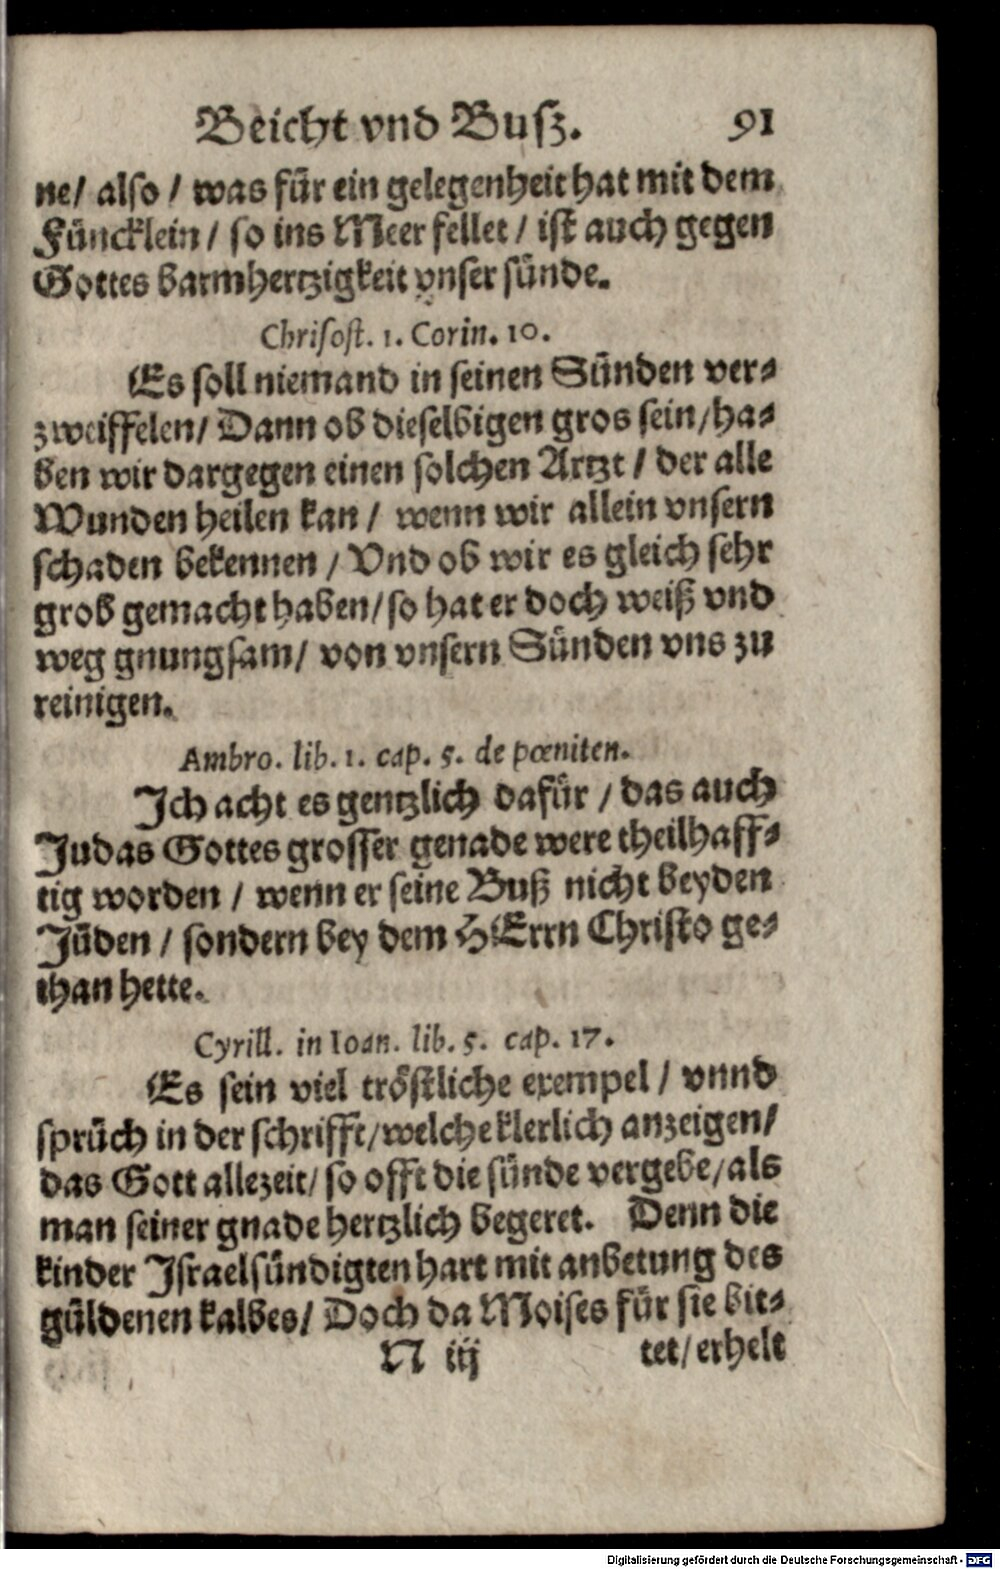 Beicht vnd Busz. 91
ne/ also / was für ein gelegenheit hat mit dem
Füncklein / so ins Meer fellet / ist auch gegen
Gottes barmhertzigkeit vnser sünde.
Chrisost. 1. Corin. 10.
Es soll niemand in seinen Sünden ver-
zweiffelen/ Dann ob dieselbigen gros sein/ ha-
ben wir dargegen einen solchen Artzt / der alle
Wunden heilen kan / wenn wir allein vnsern
schaden bekennen / Vnd ob wir es gleich sehr
grob gemacht haben/ so hat er doch weiß vnd
weg gnungsam/ von vnsern Sünden vns zu
reinigen.
Ambro. lib. 1. cap. 5. de pœniten.
Ich acht es gentzlich dafür / das auch
Judas Gottes grosser genade were theilhaff-
tig worden / wenn er seine Buß nicht bey den
Jüden / sondern bey dem HErrn Christo ge-
than hette.
Cyrill. in Ioan. lib. 5. cap. 17.
Es sein viel tröstliche exempel / vnnd
sprüch in der schrifft/ welche klerlich anzeigen/
das Gott allezeit/ so offt die sünde vergebe/ als
man seiner gnade hertzlich begeret. Denn die
kinder Israel sündigten hart mit anbetung des
güldenen kalbes/ Doch da Moises für sie bit-
N iij tet/ erhelt
Digitalisierung gefördert durch die Deutsche Forschungsgemeinschaft - DFG